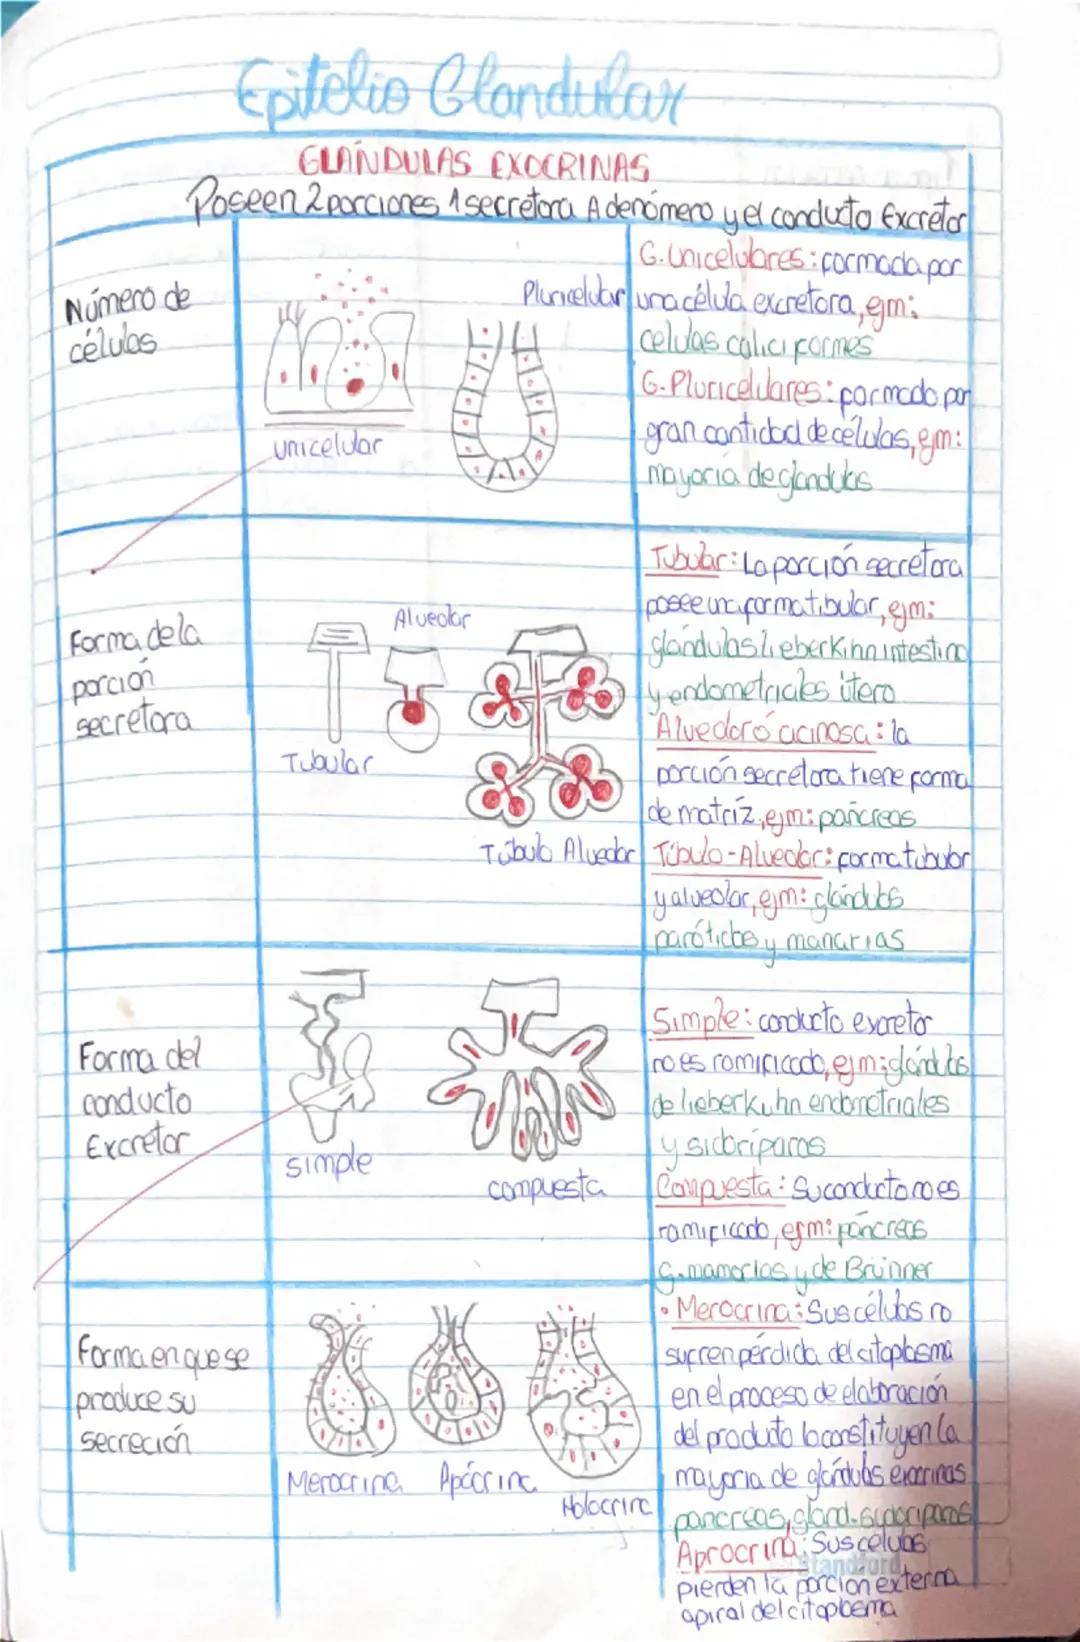 Epitelio Glandular
GLÁNDULAS EXOCRINAS
Poseen 2 porciones 1 secretora Adenómero y el conducto Excretor
Número de
células
unicelular
Pluricelular
G. Unicelulares: formada por
una célula excretora, ejm:
celulas caliciformes
G. Pluricelulares: formado por
gran cantidad de células, ejm:
mayoría de glandulas
Forma de la
porción
secretora
Tubular
Alveolar
Túbulo Alveolar
Tubular: La porción secretora
posee una forma tibular, ejm:
glándulas Lieberkihn intestino
y endometriales útero
Alveolar ó acinosa: la
porción secretora tiene forma
de matríz, ejm: páncreas
Túbulo-Alveolar: forma tubular
y alveolar, ejm: glándulas
parótidas y manarias
Forma del
conducto
Excretor
simple
compuesta
Simple: conducto excretor
no es ramificado, ejm: glándulas
de lieberkuhn endometriales
y sidoríparas
Compuesta: Su conducto no es
ramificado, ejm: páncreas
G. mamarias y de Brünner
Forma en que se
produce su
secreción
Merocrina
Apócrina
Holocrina
• Merocrina: Sus células no
sufren pérdida del citoplasma
en el proceso de elaboración
del producto lo constituyen la
mayoría de glándulas exocrinas
pancreas, gland. sudoríparas
Aprocrina: Sus celulas
Standford
pierden la porción externa
apiral del citoplasma